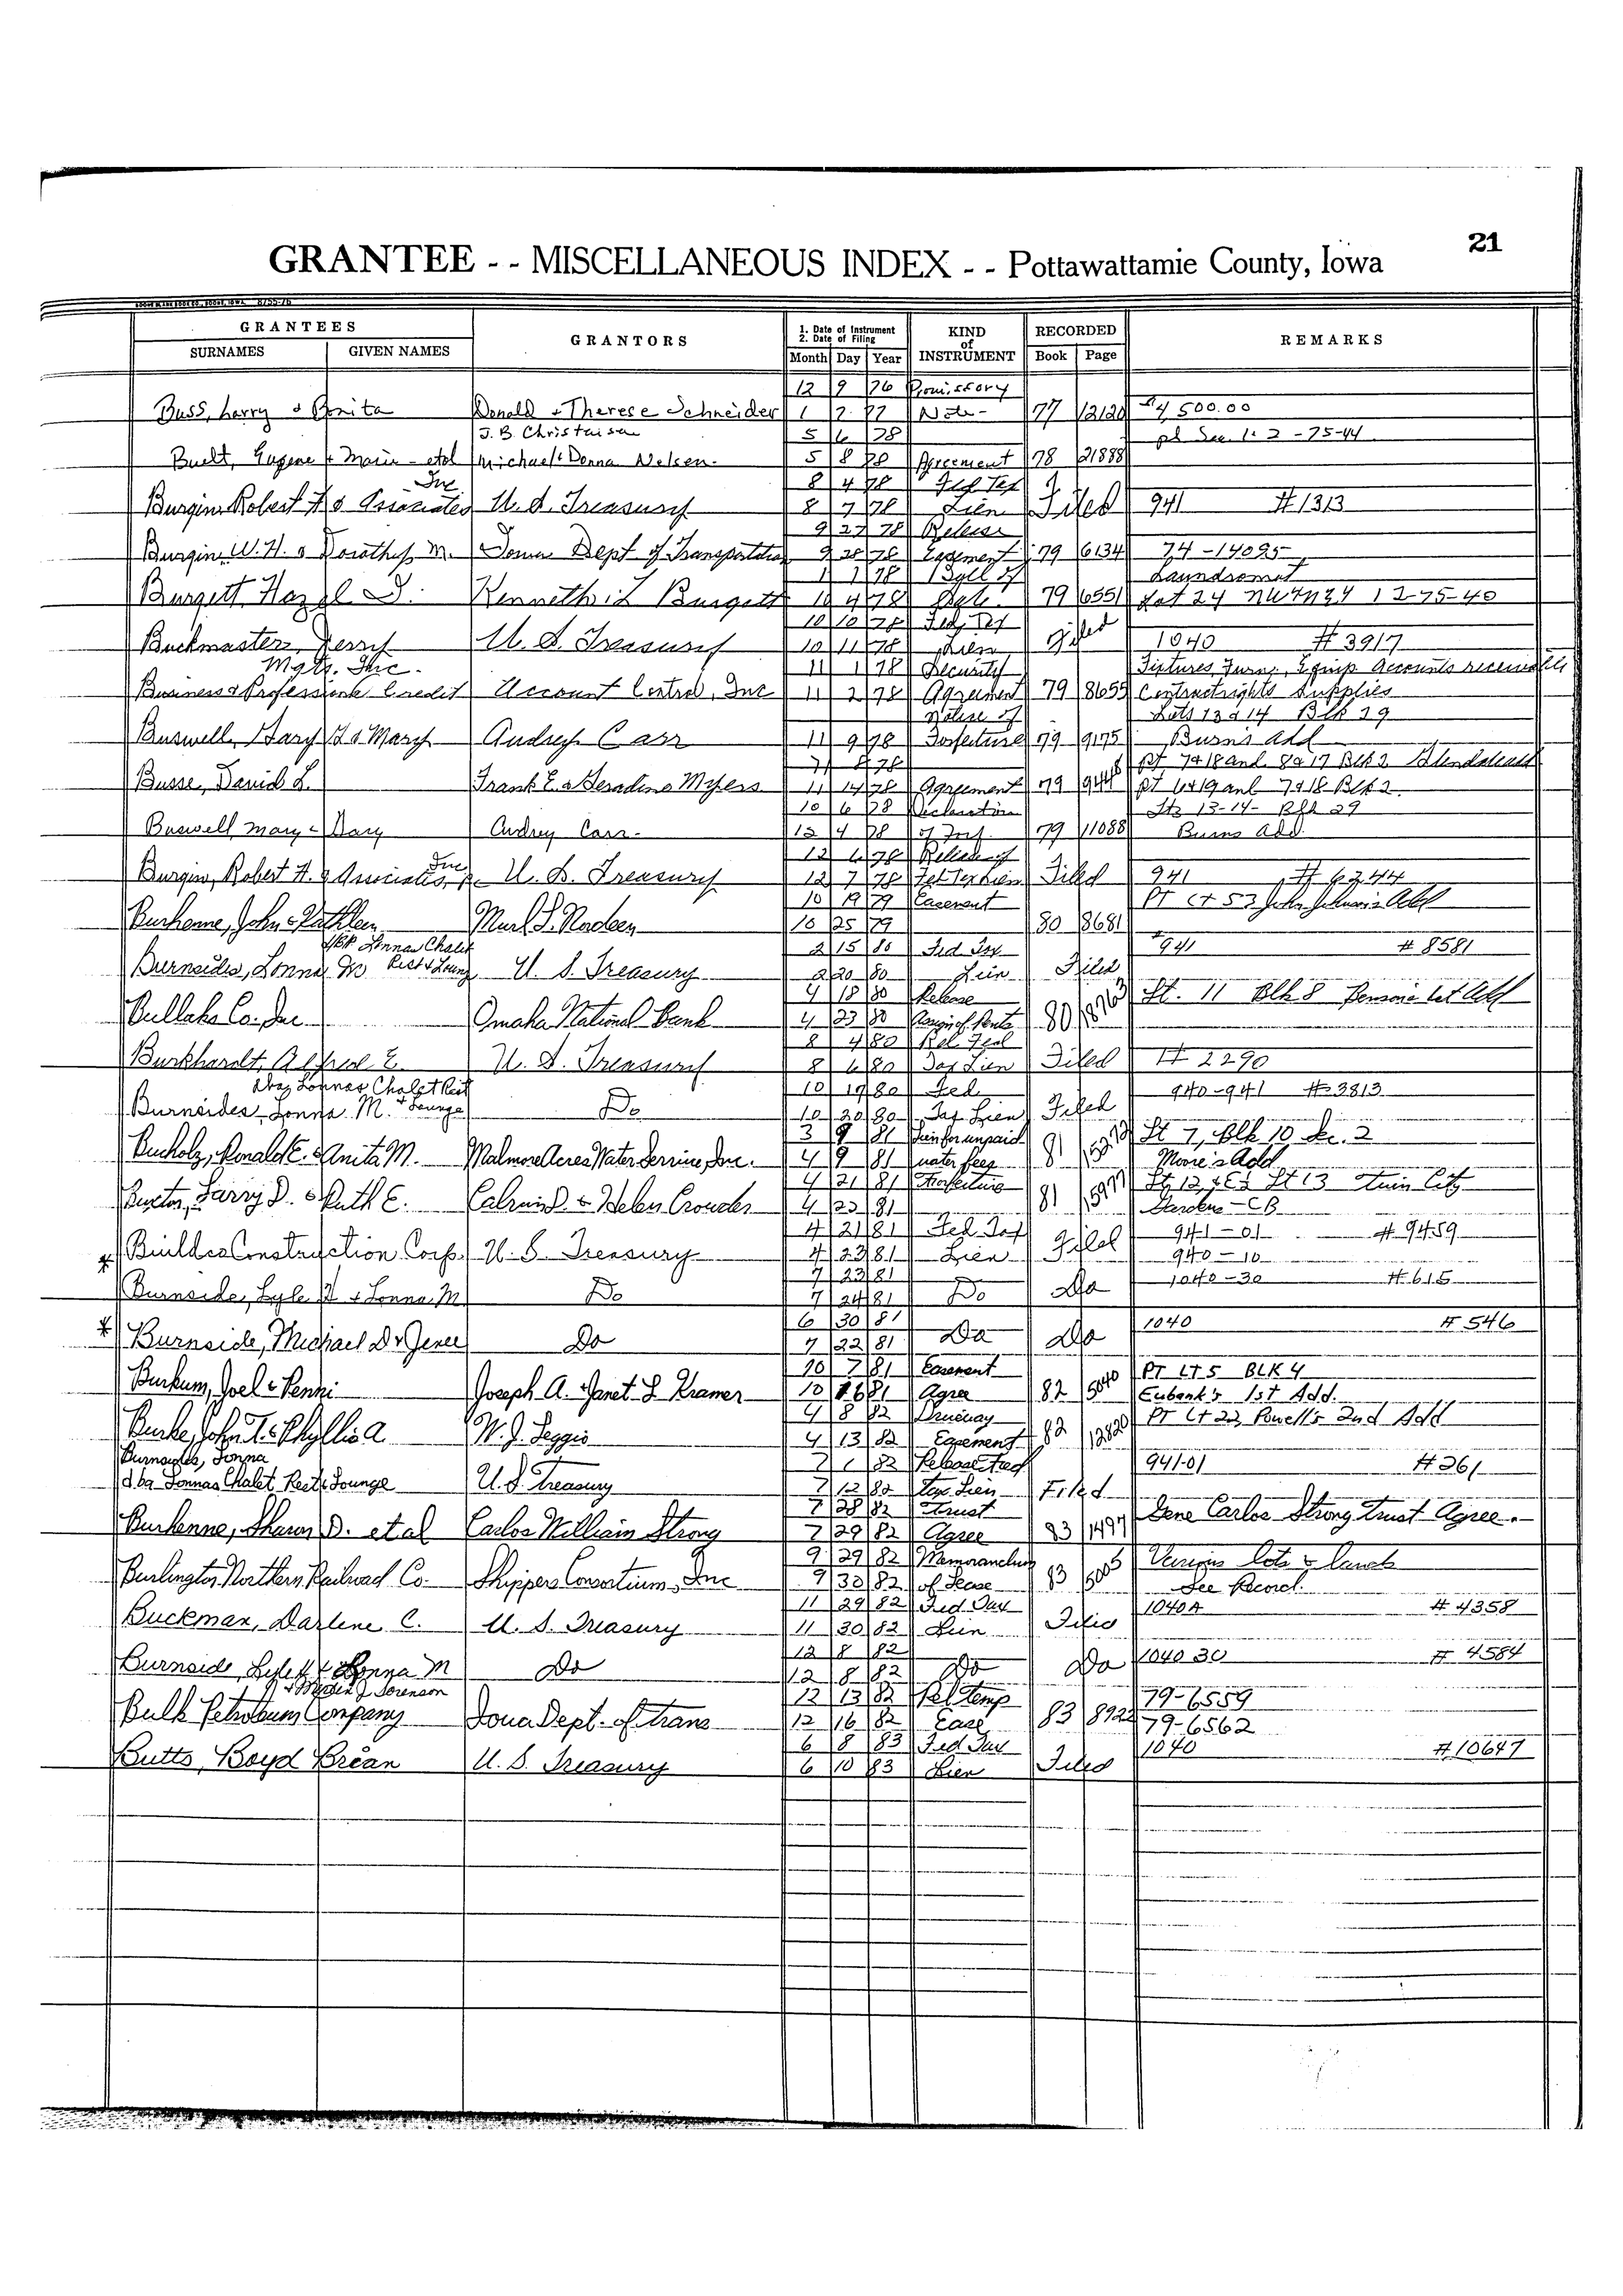 21
GRANTEE - - MISCELLANEOUS INDEX - - Pottawattamie County, Iowa
GRANTEES GRANTORS 1. Date of Instrument 2. Date of Filing KIND of INSTRUMENT RECORDED REMARKS
SURNAMES GIVEN NAMES Month Day Year Book Page
12 9 76 Promissory
Buss, Larry & Bonita Donald & Therese Schneider 1 7 77 Note 77 12120 $4,500.00
J. B. Christensen 5 6 78 pt Sec 1: 2-75-44
Buelt, Eugene & Marie - etal Michael & Donna Nelsen 5 8 78 Agreement 78 21888
Inc 8 4 78 Fed Tax
Burgin, Robert H & Associates U. S. Treasury 8 7 78 Lien Filed 941 #1313
9 27 78 Release
Burgin, W. H. & Dorothy M. Iowa Dept of Transportation 9 28 78 Easement 79 6134 74-14095
1 78 Bill of Laundromat
Burgett, Hazel Kenneth L Burgett 10 4 78 Sale 79 6551 Lot 24 NW4 1 2-75-40
10 10 78 Fed Tax
Buckmaster, Jerry U. S. Treasury 10 11 78 Lien Filed 1040 #3917
Mgts. Inc. 11 1 78 Security Fixtures, Furn, Equip Accounts receivable
Business & Professional Credit Account Control, Inc 11 2 78 Agreement 79 8655 Contract rights Supplies
Notice of Lots 13 & 14 Blk 29
Buswell, Gary L & Mary Audrey Carr 11 9 78 Forfeiture 79 9175 Burns Add
78 pt 7&18 and 8&17 Blk 2
Busse, David L. Frank E. & Geradine Myers 11 14 78 Agreement 79 9448 pt 6&19 and 7&18 Blk 2
10 6 78 Declaration Lts 13-14- Blk 29
Buswell Mary & Gary Audrey Carr 12 4 78 of Forf. 79 11088 Burns Add.
Inc 12 6 78 Release of
Burgin, Robert H. & Associates, U. S. Treasury 12 7 78 Fed Tax Lien Filed 941 #6244
10 19 79 Easement PT LT 53 John Add
Burhenne, John & Kathleen Murl L. 10 25 79 80 8681
dba Lonnas Chalet 2 15 80 Fed Tax 941 #8581
Burnsides, Lonna M Rest & Loung U. S. Treasury 2 20 80 Lien Filed
4 18 80 Release Lt. 11 Blk 8
Co. Inc. Omaha National Bank 4 23 80 Assign of Rents 80
8 4 80 Rel Fed
Burkhardt, Alfred E. U. S. Treasury 8 6 80 Tax Lien Filed #2290
dba Lonnas Chalet Rest 10 17 80 Fed. 940-941 #3813
Burnsides, Lonna M. & Lounge Do 10 20 80 Tax Lien Filed
3 9 81 Lien for unpaid Lt 7, Blk 10 Sec. 2
Bucholz, Ronald E. & Anita M. Malmore Acres Water Service, Inc. 4 9 81 water fees 81 Moore's Add
4 21 81 Forfeiture Lt 12, & E2 Lt 13 Twin City
Buxton, Larry D. & Ruth E. Calvin D. & Helen Crouch 4 23 81 81 15977 Gardens - CB
4 21 81 Fed Tax 941-01 #9459
* Builders Construction Corp. U. S. Treasury 4 23 81 Lien Filed 940-10
7 23 81 1040-30 #615
Burnside, Lyle & Lonna M Do 7 24 81 Do Do
6 30 81 1040 #546
* Burnside, Michael D & Do 7 22 81 Do Do
10 7 81 Easement PT LT 5 BLK 4
Burkum, Joel & Penni Joseph A. & Janet L Kramer 10 81 Agree 82 5040 Eubank's 1st Add.
4 8 82 Driveway PT Lt 23 Powell's 2nd Add
Burke, John T. & Phyllis A W. J. Leggio 4 13 82 Easement 82
Burnsides, Lonna 7 1 82 Release Fed 941-01 #261
dba Lonnas Chalet Rest & Lounge U. S. Treasury 7 12 82 Tax Lien Filed
7 28 82 Trust Gene Carlos Strong Trust Agree.
Burhenne, Sharon D. et al Carlos William Strong 7 29 82 Agree 83 1497
9 29 82 Memorandum Various lots & lands
Burlington Northern Railroad Co. Shippers Consortium, Inc 9 30 82 of Lease 83 5005 See Record.
11 29 82 Fed Tax 1040A #4358
Buckman, Darlene C. U. S. Treasury 11 30 82 Lien Filed
12 8 82
Burnside, Lyle & Lonna M Do 12 8 82 Do Do 1040 30 #4584
J Sorenson 12 13 82 Rel Temp 79-6559
Bulk Petroleum Company Iowa Dept. of Trans 12 16 82 Ease 83 8922 79-6562
6 8 83 Fed Tax 1040 #10647
Butts, Boyd Brean U. S. Treasury 6 10 83 Lien Filed